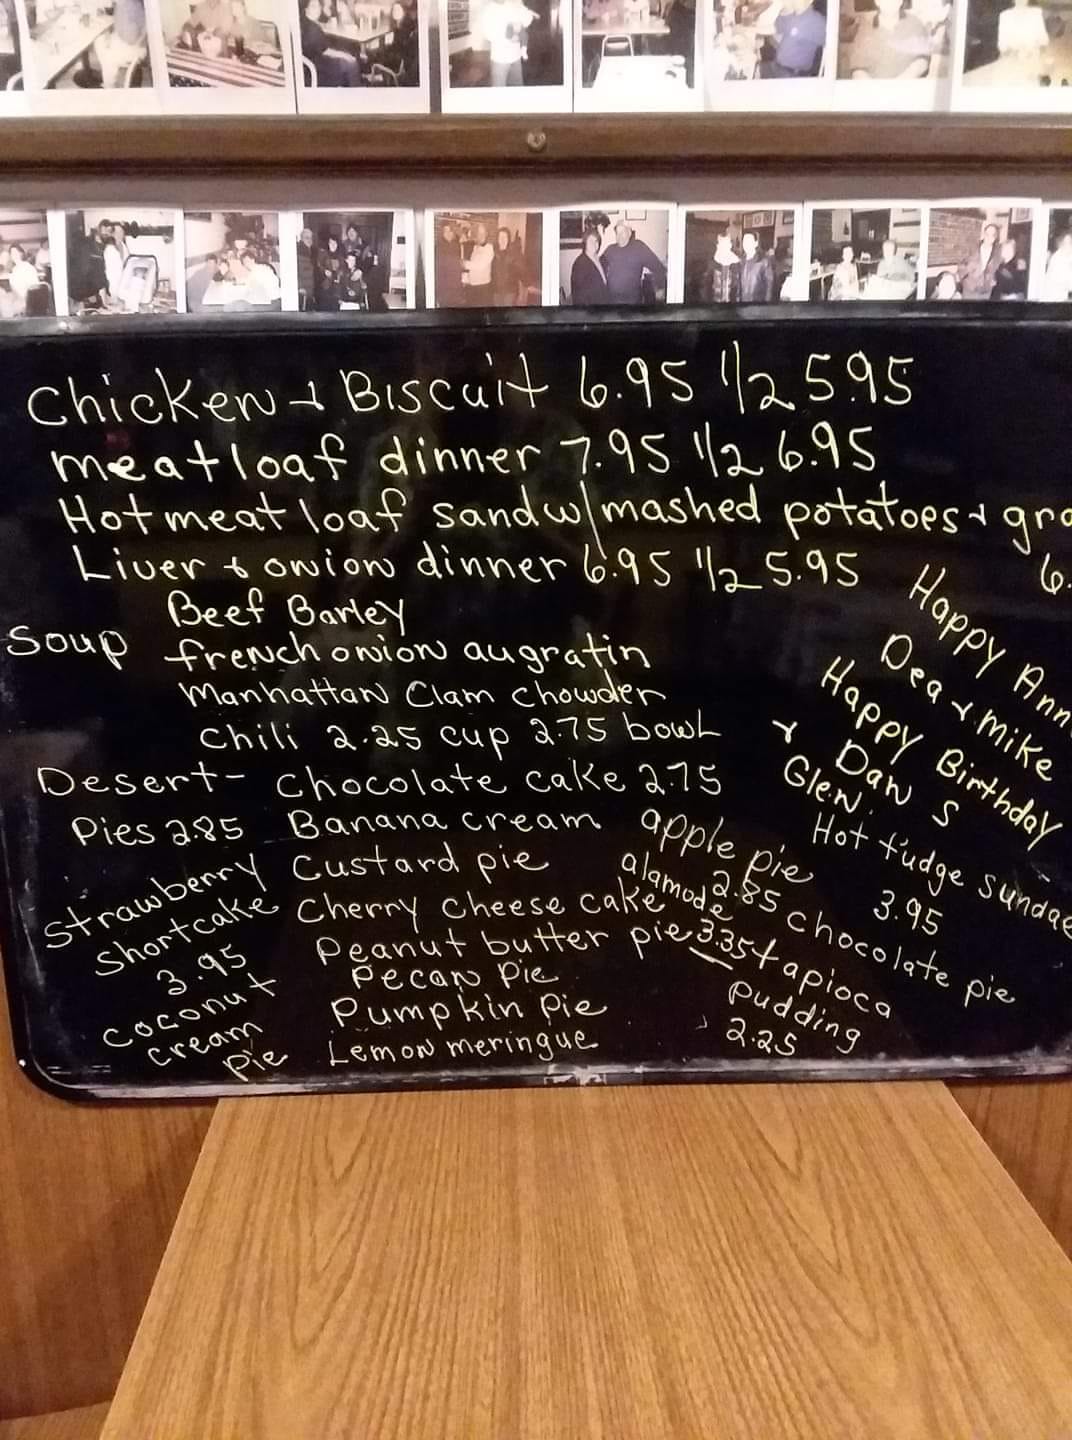 Chicken + Biscuit 6.95 1/2 5.95
meatloaf dinner 7.95 1/2 6.95
Hot meat loaf sand w/mashed potatoes +
Liver + onion dinner 6.95 1/2 5.95
6.
Soup
Beef Barley
french onion augratin
Manhattan Clam Chowder
Chili 2.25 cup 2.75 bowl
Happy Ann
Dea + Mike
Happy Birthday
+ Dan S
Glen
Desert - Chocolate cake 2.75
Pies 2.85
Banana cream
Custard pie
Cherry Cheese cake
Peanut butter pie
Pecan Pie
Pumpkin Pie
Lemon meringue
Strawberry
Shortcake
3.95
Coconut
cream
pie
apple pie
2.85
alamode
3.35
Hot fudge sundae
3.95
chocolate pie
tapioca
pudding
2.25